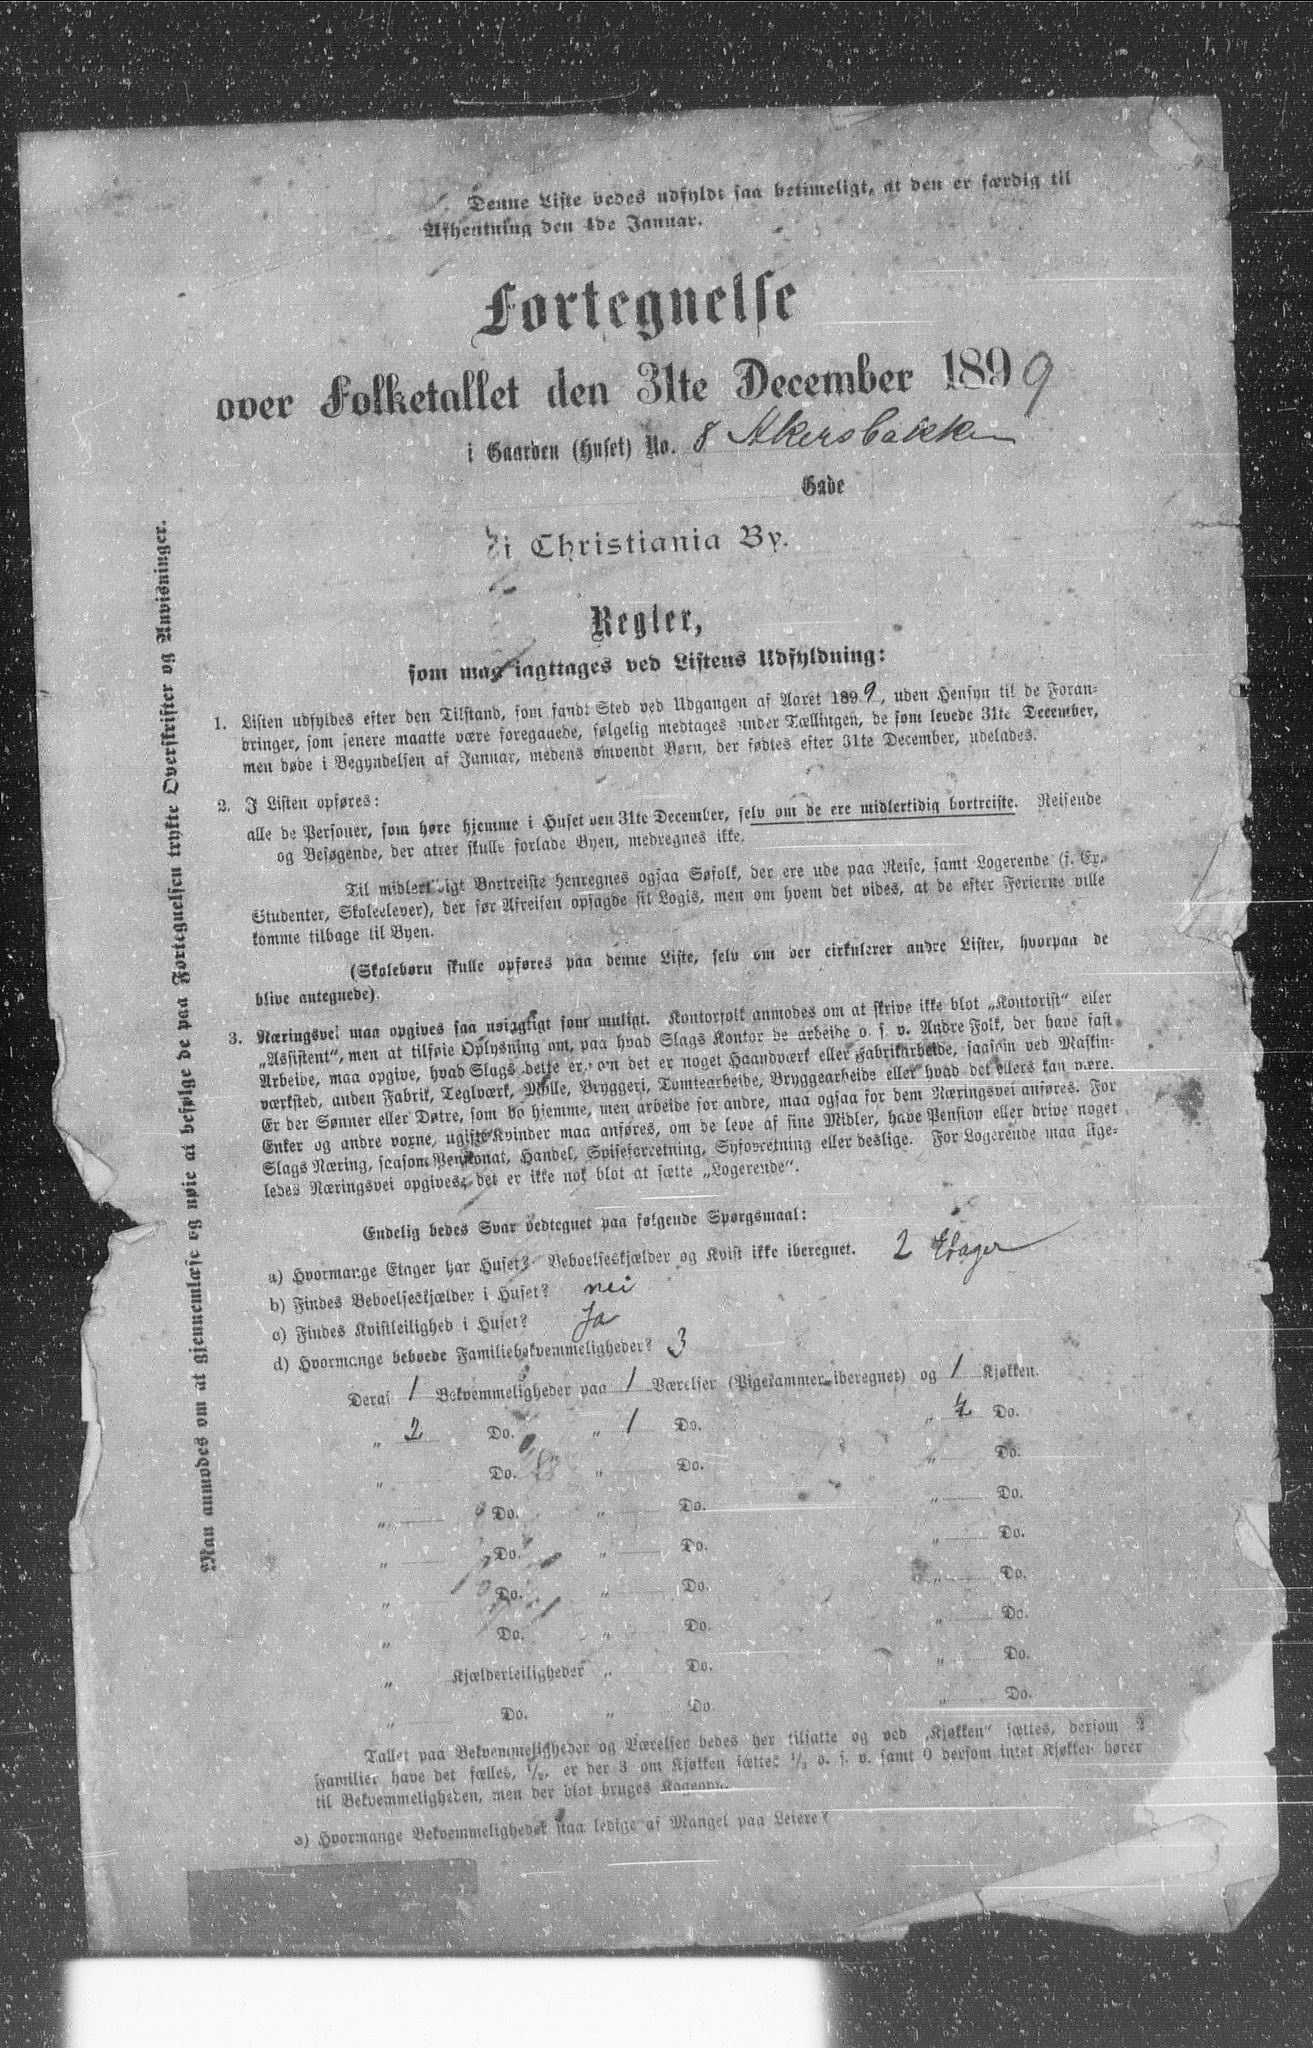 Denne Liste bedes udfyldt saa betimeligt, at den er færdig til
Afhentning den 4de Januar.
Fortegnelse
over Folketallet den 31te December 1899
i Gaarden (Huset) No. 8 Akersbakken
Gade
i Christiania By.
Regler,
som maa iagttages ved Listens Udfyldning:
1. Listen udfyldes efter den Tilstand, som fandt Sted ved Udgangen af Aaret 1899, uden Hensyn til de Foran-
dringer, som senere maatte være foregaaede, følgelig medtages under Tællingen, de som levede 31te December,
men døde i Begyndelsen af Januar, medens omvendt Børn, der fødtes efter 31te December, udelades.
2. I Listen opføres:
alle de Personer, som høre hjemme i Huset den 31te December, selv om de ere midlertidig bortreiste. Reisende
og Besøgende, der atter skulle forlade Byen, medregnes ikke.
Til midlertidigt Bortreiste henregnes ogsaa Søfolk, der ere ude paa Reise, samt Logerende (f. Ex.
Studenter, Skoleelever), der før Afreisen opsagde sit Logis, men om hvem det vides, at de efter Ferierne ville
komme tilbage til Byen.
(Skolebørn skulle opføres paa denne Liste, selv om der cirkulerer andre Lister, hvorpaa de
blive antegnede).
3. Næringsvei maa opgives saa nøiagtigt som muligt. Kontorfolk anmodes om at skrive ikke blot „Kontorist" eller
„Assistent", men at tilføie Oplysning om, paa hvad Slags Kontor de arbeide o. s. v. Andre Folk, der have fast
Arbeide, maa opgive, hvad Slags dette er, om det er noget Haandværk eller Fabrikarbeide, saasom ved Maskin-
værksted, anden Fabrik, Teglværk, Mølle, Bryggeri, Tomtearbeide, Bryggearbeide eller hvad det ellers kan være.
Er der Sønner eller Døtre, som bo hjemme, men arbeide for andre, maa ogsaa for dem Næringsvei anføres. For
Enker og andre voxne, ugifte Kvinder maa anføres, om de leve af sine Midler, have Pension eller drive noget
Slags Næring, saasom Pensionat, Handel, Spiseforretning, Syforretning eller deslige. For Logerende maa lige-
ledes Næringsvei opgives; det er ikke nok blot at sætte „Logerende".
Endelig bedes Svar vedtegnet paa følgende Spørgsmaal:
a) Hvormange Etager har Huset? Beboelseskjælder og Kvist ikke iberegnet. 2 Etager
b) Findes Beboelseskjælder i Huset? nei
c) Findes Kvistleilighed i Huset? Ja
d) Hvormange beboede Familiebekvemmeligheder? 3
Deraf 1 Bekvemmeligheder paa 1 Værelser (Pigekammer iberegnet) og 1 Kjøkken.
„ 2 Do. „ 1 Do. „ ½ Do.
„ Do. „ Do. „ Do.
„ Do. „ Do. „ Do.
„ Do. „ Do. „ Do.
„ Do. „ Do. „ Do.
„ Do. „ Do. „ Do.
„ Kjælderleiligheder „ Do. „ Do.
„ Do. „ Do. „ Do.
Tallet paa Bekvemmeligheder og Værelser bedes her tilsatte og ved „Kjøkken" sættes, dersom 2
Familier have det fælles, 1/2, er der 3 om Kjøkken sættes 1/3 o. s. v. samt 0 dersom intet Kjøkken hører
til Bekvemmeligheden, men der blot bruges Kogeovn.
e) Hvormange Bekvemmeligheder staa ledige af Mangel paa Leiere?
Man anmodes om at gjennemlæse og nøie at befølge de paa Fortegnelsen trykte Overskrifter og Anvisninger.